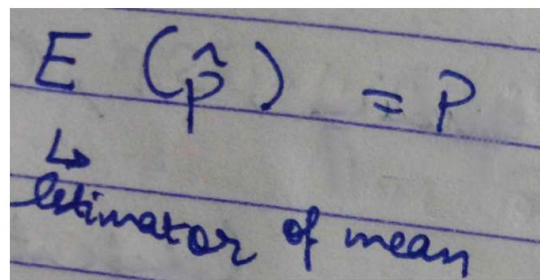 E (p̂) = P
↳
estimator of mean